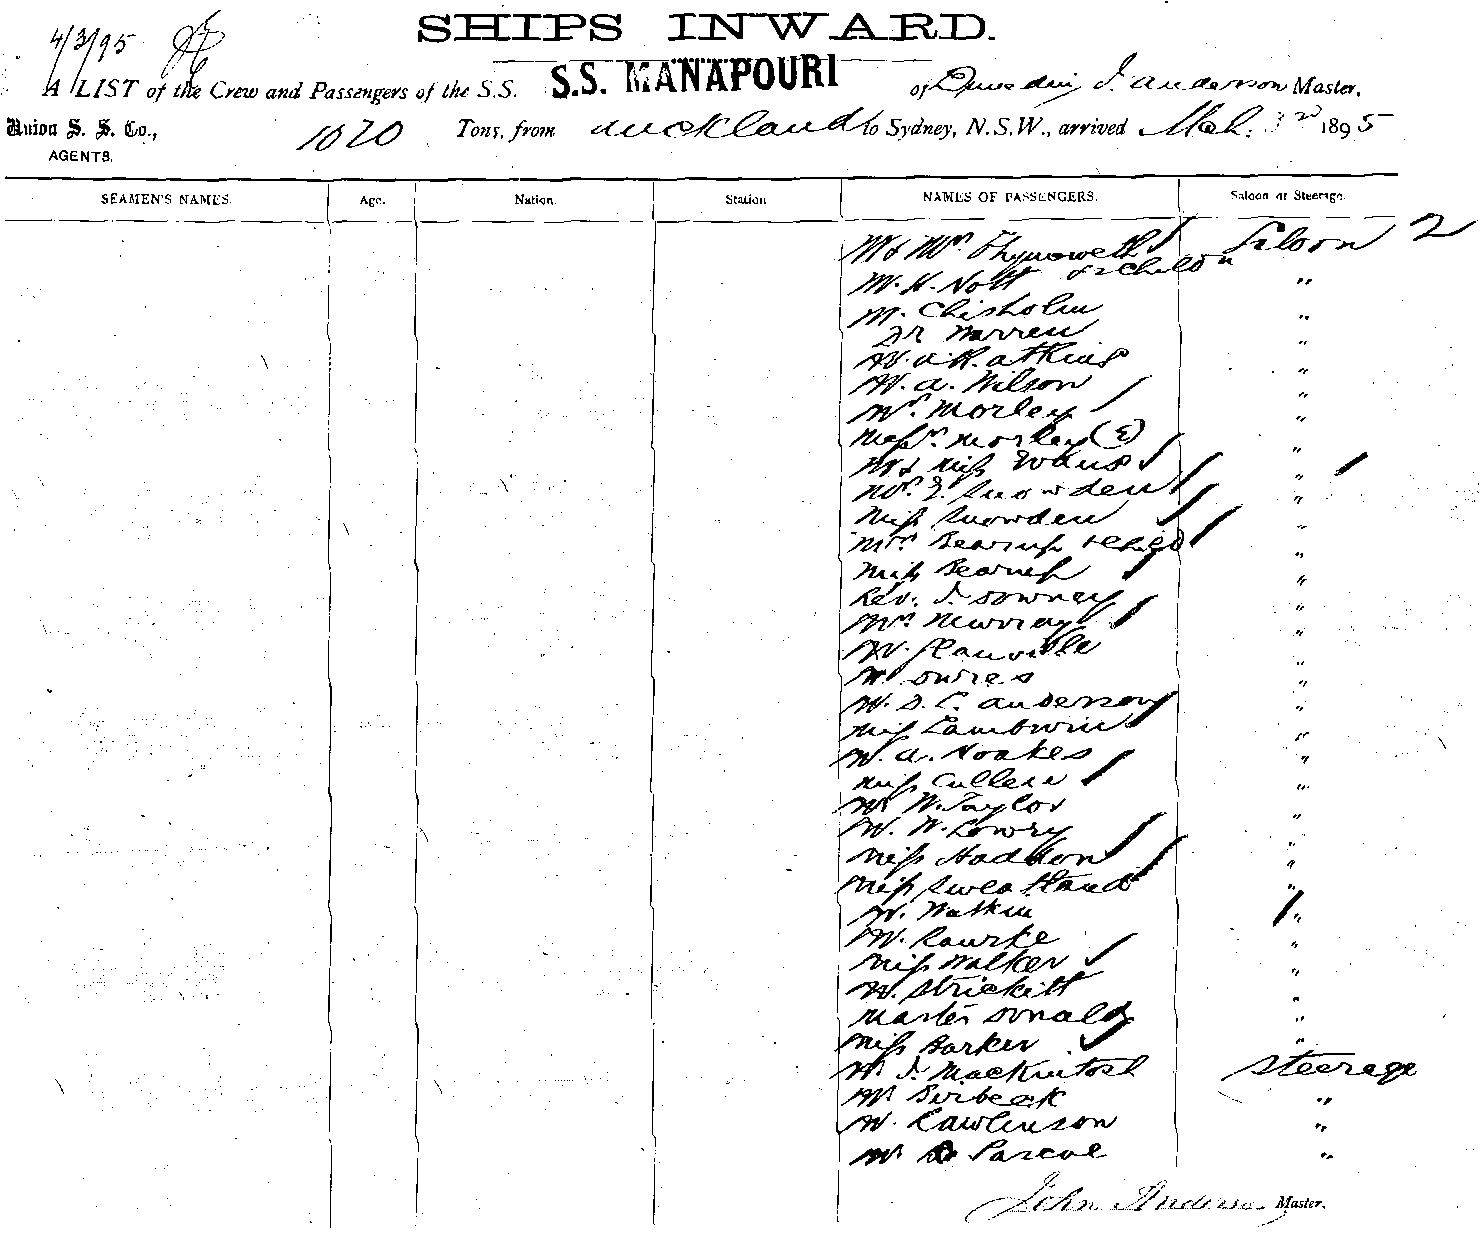 SHIPS INWARD.
4/3/95
A LIST of the Crew and Passengers of the S.S. S.S. MANAPOURI of Dunedin, J. Anderson Master,
Union S. S. Co., 1020 Tons, from Auckland to Sydney, N.S.W., arrived Mch. 3rd 1895
AGENTS.
SEAMEN'S NAMES. Age. Nation. Station NAMES OF PASSENGERS. Saloon or Steerage.
Mr & Mrs. Saloon 2
& 2 childn
Mr. H. Nott "
Mr. Chisholm "
Dr Warren "
Mr. A. R. Atkins "
Mr. A. Wilson "
Mrs. Morley "
Messrs. Morley (2) "
Mr & Miss Evans "
Mrs. J. Snowden "
Miss Snowden "
Mrs. Bearup & child "
Miss Bearup "
Rev. J. Downey "
Mrs. Murray "
Mr. "
Mr. "
Mr. D. C. Anderson "
Miss "
Mr. A. Noakes "
Miss Cullen "
Mr. W. Taylor "
Mr. W. Lowry "
Miss Haddon "
Miss Sweatland "
Mr. Watkin "
Mr. Rourke "
Miss Walker "
Mr. Strickitt "
Master Donald "
Miss Barker "
Mr. J. Mackintosh Steerage
Mr. Birbeck "
Mr. Rawlinson "
Mr. Pascoe "
John Anderson Master.